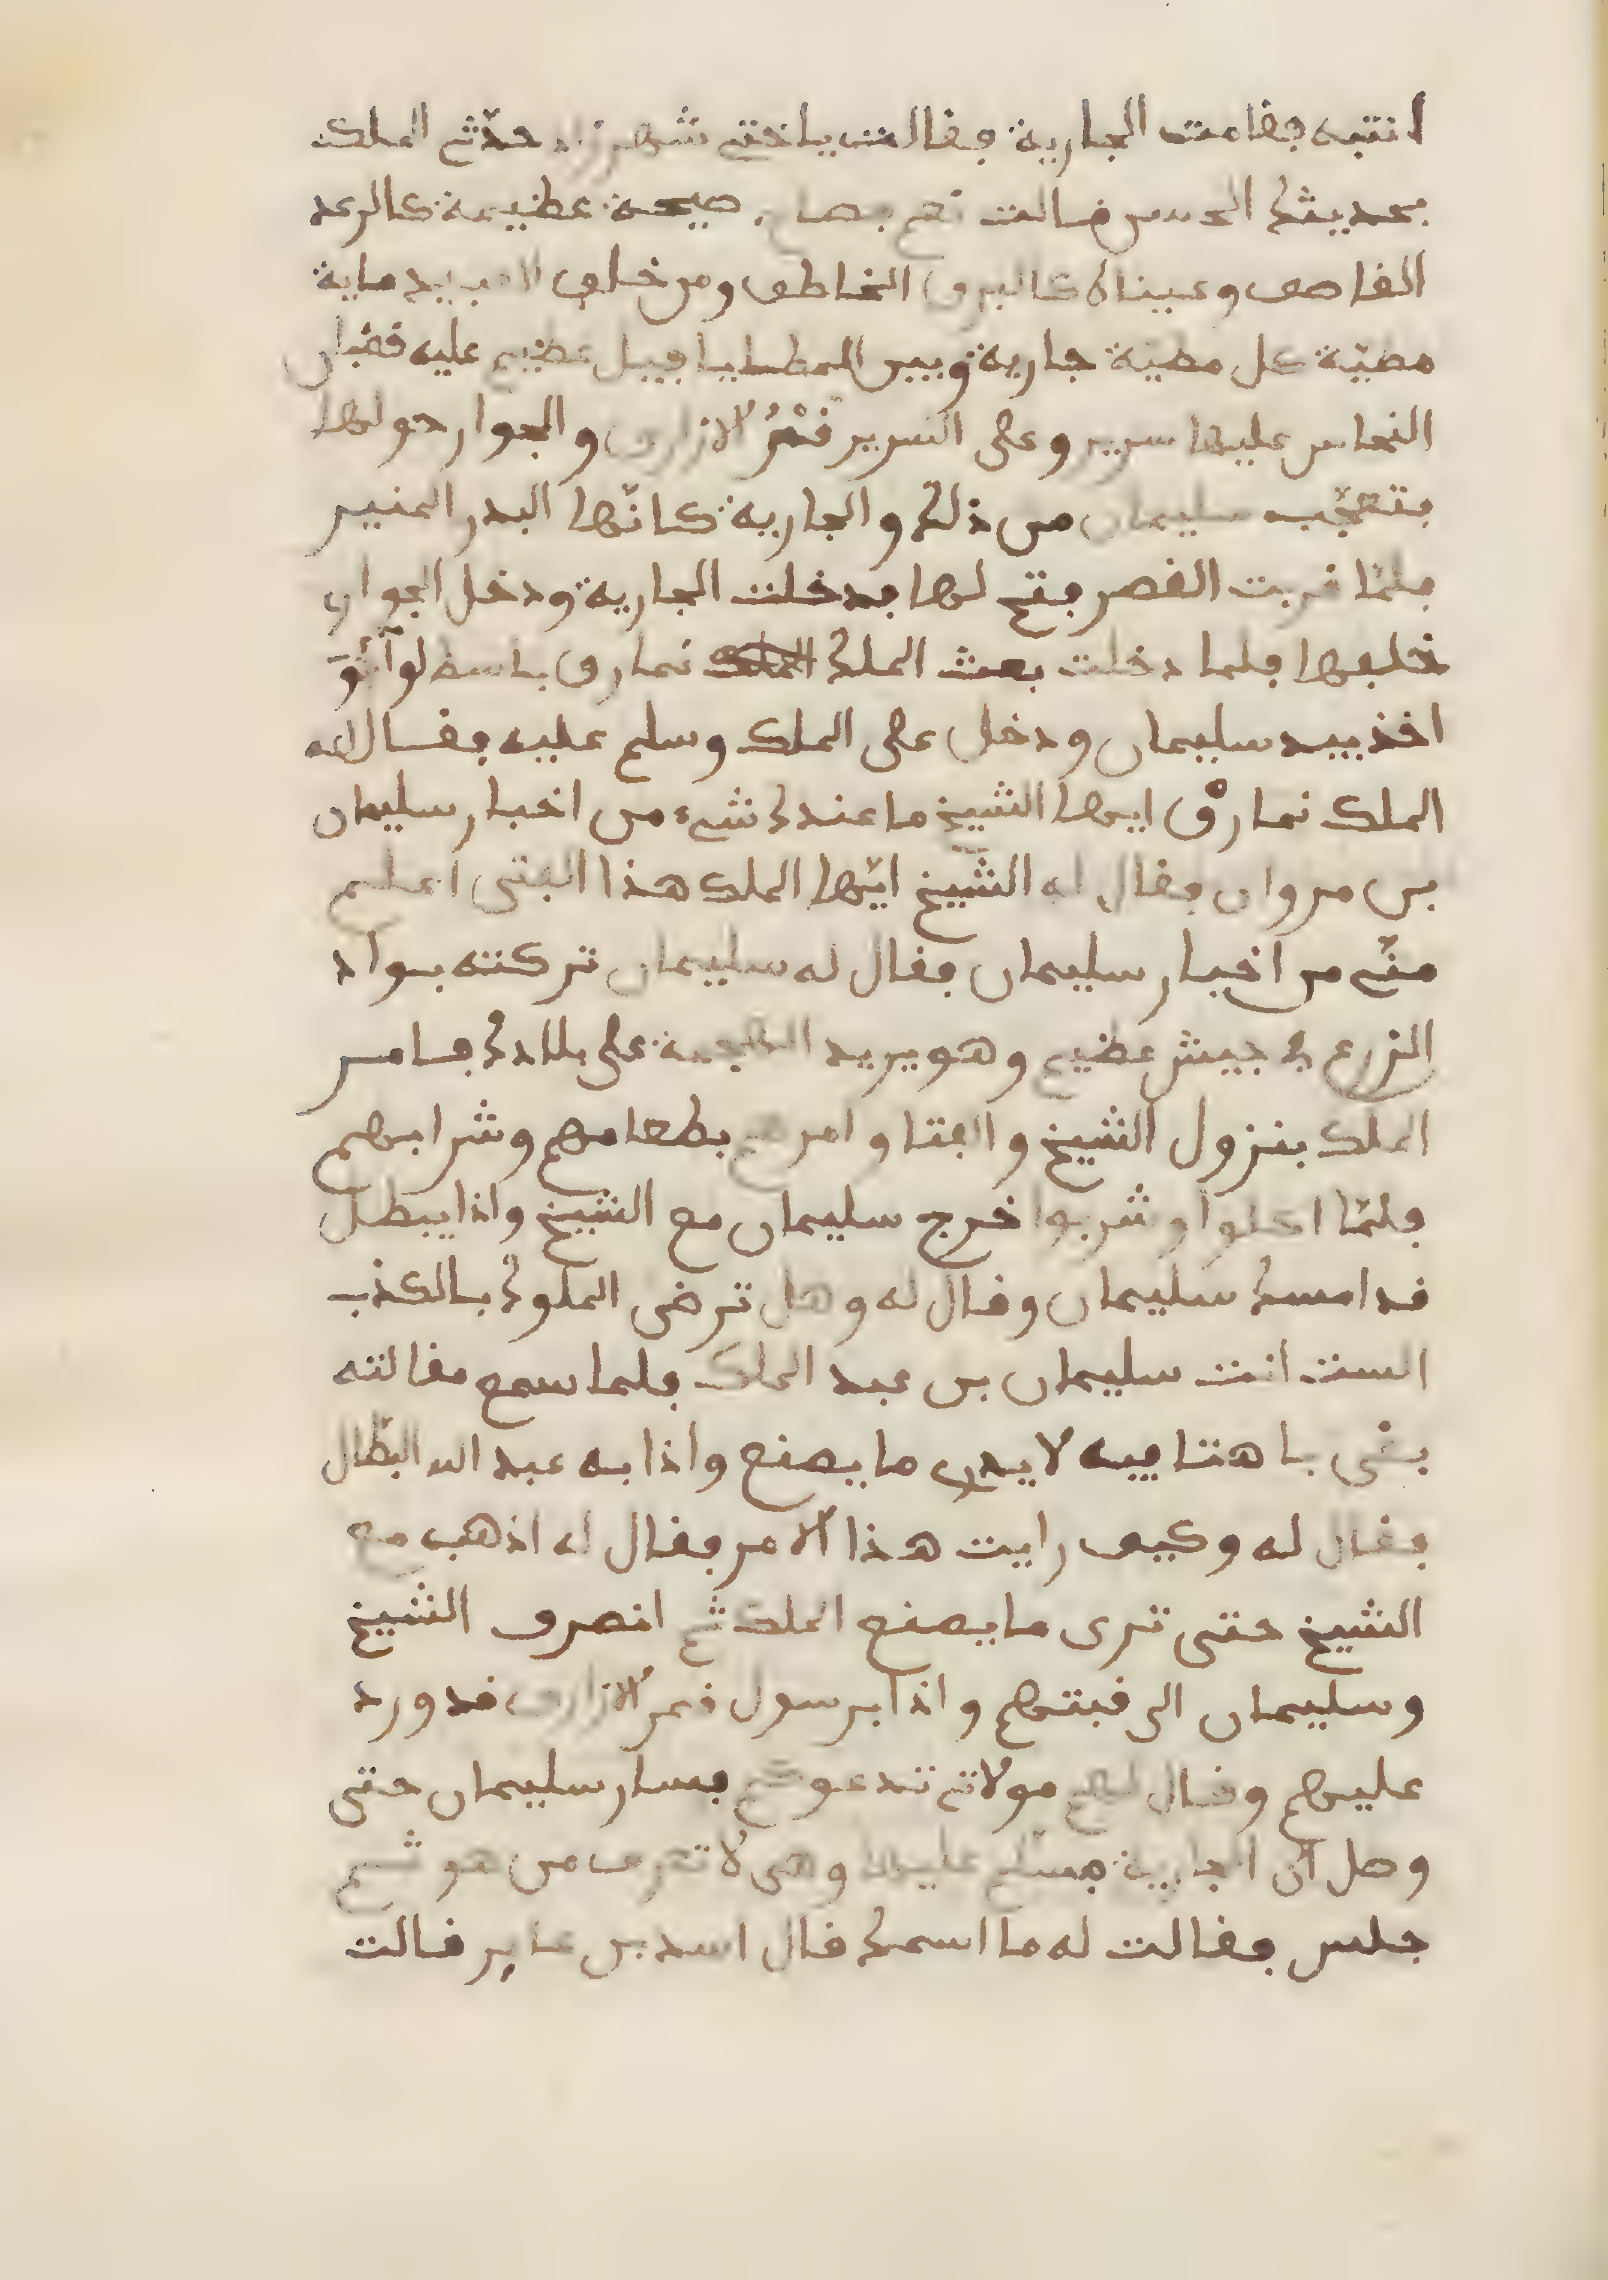 انتبه فقامت الجارية فقالت ياختي شهرزاد حدّثي الملك
بحديثك الحسن فالت نعم فصاح صيحة عظيمة كالرعد
القاصف وعيناه كالبرق الخاطف ومن خلف العبيد ماية
مطيّة على مطيّة جارية وبين المطايا فيل عظيم عليه قضبان
النحاس عليها سرير وعلى السرير قمرُ الازرار والجوار حولها
فتعجّب سليمان من ذلك والجارية كانّها البدر المنير
فلمّا قربت القصر فتح لها فدخلت الجارية ودخل الجوار
خلفها فلما دخلت بعث الملك نمارق
اخذ بيد سليمان ودخل على الملك وسلم عليه فقال له
الملك نمارق ايها الشيخ ما عندك شيء من اخبار سليمان
بن مروان فقال له الشيخ ايّها الملك هذا الفتى اعلم
منّي من اخبار سليمان فقال له سليمان تركته بواد
الزرع في جيش عظيم وهو يريد الهجمة على بلادك فامر
الملك بنزول الشيخ والفتا وامر لهم بطعامهم وشرابهم
فلمّا اكلوا وشربوا خرج سليمان مع الشيخ واذا ببطل
قد امسك سليمان وقال له وهل ترضى الملوك بالكذب
الست انت سليمان بن عبد الملك فلما سمع مقالته
بقى باهتا فيه لا يدري ما يصنع واذا به عبد الله البطّال
فقال له وكيف رايت هذا الامر فقال له اذهب مع
الشيخ حتى ترى ما يصنع الملك ثم انصرف الشيخ
وسليمان الى قبتهم واذا برسول قمر الازرار قد ورد
عليهم وقال لهم مولاتي تدعوكم فسار سليمان حتى
وصل الى الجارية فسلّم عليها وهى لا تعرف من هو ثم
جلس فقالت له ما اسمك قال اسد بن عامر قالت